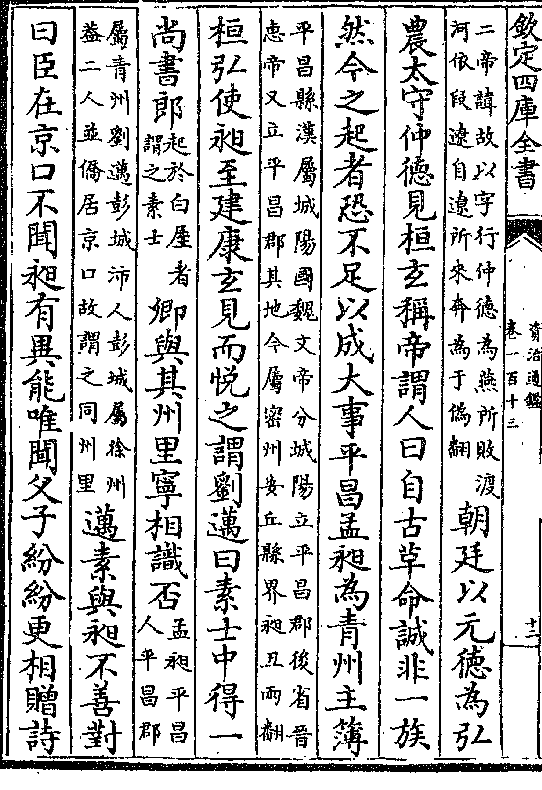 欽定四庫全書
資治通鑑
卷一百十三
十二
二帝諱故以字行仲德為燕所敗渡
河依段遼自遼所來奔為于偽翻
朝廷以元德為弘
農太守仲德見桓玄稱帝謂人曰自古革命誠非一族
然今之起者恐不足以成大事平昌孟昶為青州主簿
平昌縣漢屬城陽國魏文帝分城陽立平昌郡後省晉
惠帝又立平昌郡其地今屬密州安丘縣界昶丑兩翻
桓弘使昶至建康玄見而悅之謂劉邁曰素士中得一
尚書郎
起於白屋者
謂之素士
卿與其州里寧相識否
孟昶平昌
人平昌郡
屬青州劉邁彭城沛人彭城屬徐州
葢二人並僑居京口故謂之同州里
邁素與昶不善對
曰臣在京口不聞昶有異能唯聞父子紛紛更相贈詩